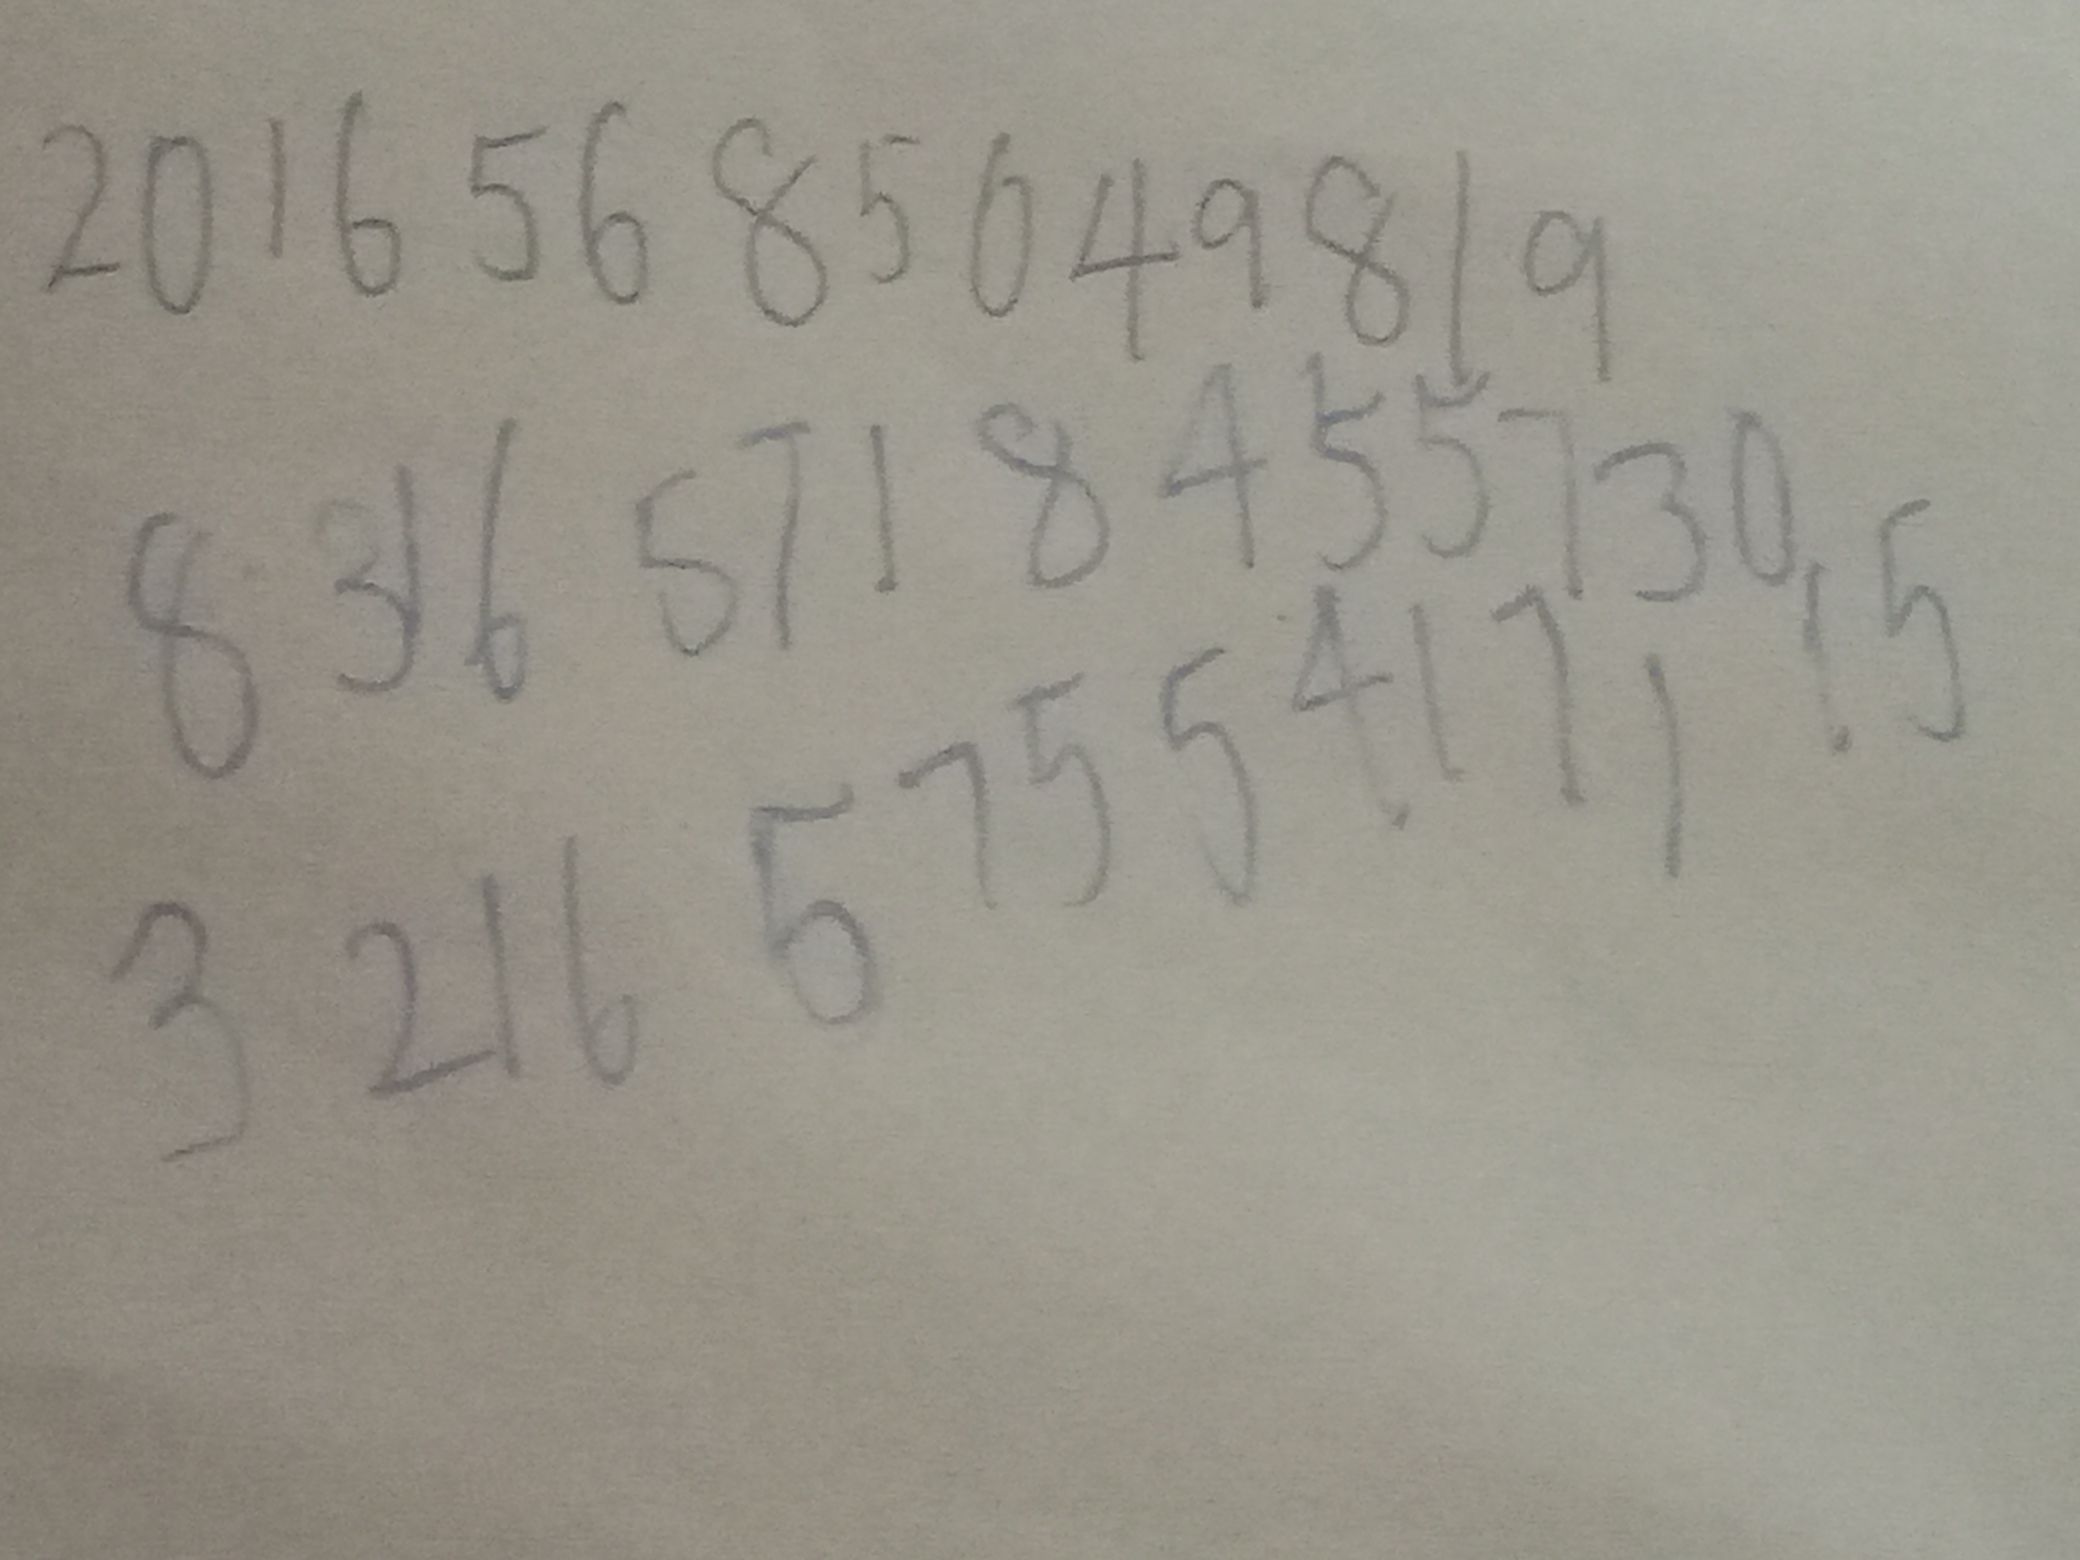 2016 56 85049819
8 316 571 84557301.5
3 216 57554.171